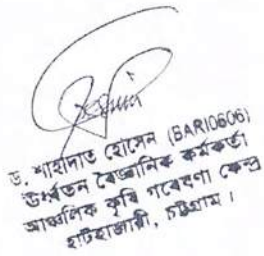 ড. শাহাদাত হোসেন (BARI0606)
ঊর্ধ্বতন বৈজ্ঞানিক কর্মকর্তা
আঞ্চলিক কৃষি গবেষণা কেন্দ্র
হাটহাজারী, চট্টগ্রাম।